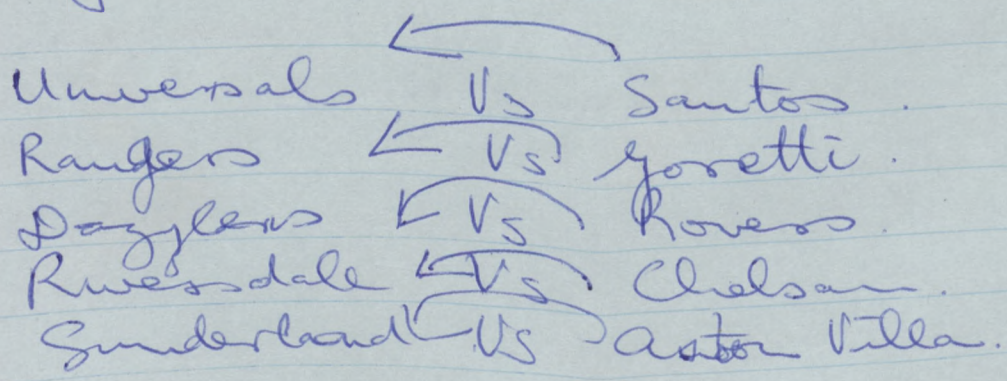 Universals Vs Santos.
Rangers Vs Goretti.
Dazzlers Vs Rovers.
Riversdale Vs Chelsea.
Sunderland Vs Aston Villa.